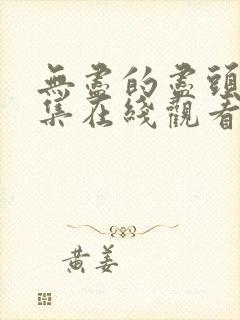 無盡的盡頭
集在綫觀看
黃姜